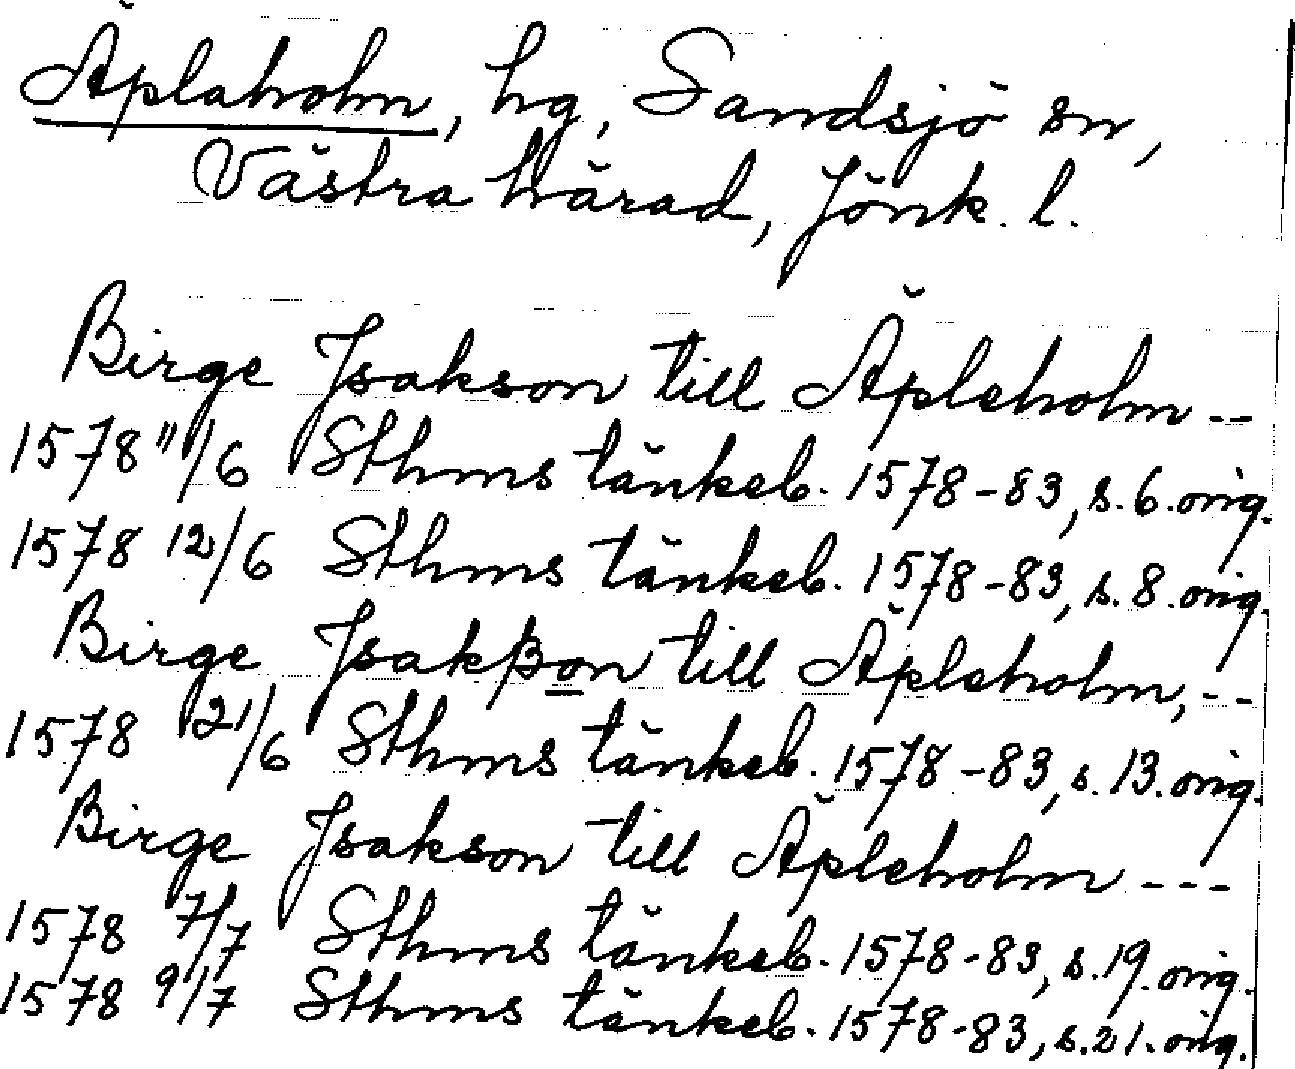 Äplaholm, hg, Sandsjö sn,
Västra härad, Jönk. l.
Birge Jsakson till Äpleholm --
1578 11/6 Sthms tänkeb. 1578-83, s. 6. orig.
1578 12/6 Sthms tänkeb. 1578-83, s. 8. orig.
Birge Jsakßon till Äpleholm, --
1578 21/6 Sthms tänkeb. 1578-83, s. 13. orig.
Birge Jsakson till Äpleholm ---
1578 7/7 Sthms tänkeb. 1578-83, s. 19. orig.
1578 9/7 Sthms tänkeb. 1578-83, s. 21. orig.